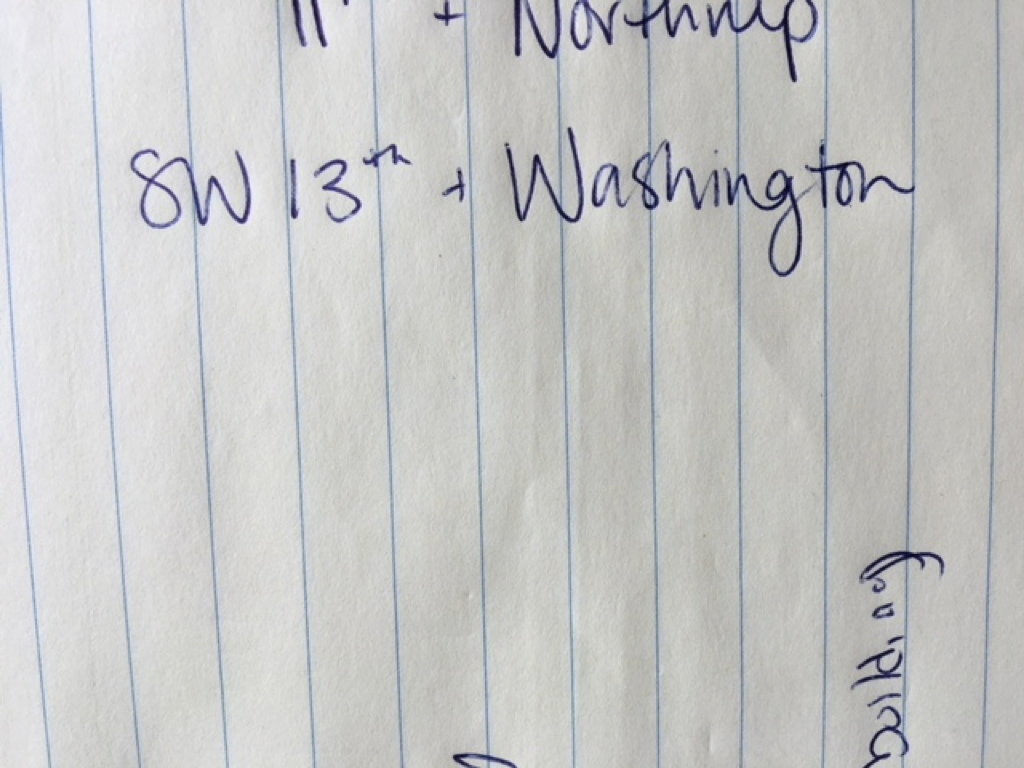 11th + Northrup
SW 13th + Washington